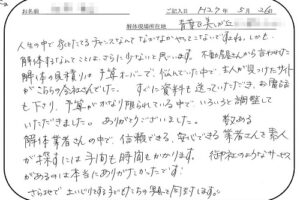 お名前
ご記入日 H27年 5月 2日
解体現場所在地 青葉区美しが丘
人生の中で家をたてるチャンスなんてなかなかやってこないですよね。しかも、
解体するなんてことは、さらに少ないと思います。不動産屋さんから言われた
解体の見積りは予算オーバーで、悩んでいた中で、主人が見つけたサイト
がこちらの会社さんでした。すぐに資料を送っていただき、お電話
も下さり、予算がかなり限られている中で、いろいろと調整して
いただきました。ありがとうございました。 数ある
解体業者さんの中で、信頼できる、安心できる業者さんを素人
が探すには手間も時間もかかります。御社のようなサービス
があるのは本当にありがたかったです！
さら地で土いじりする子どもたちの写真と同封します。